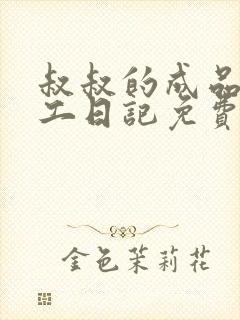 叔叔的成品
工日记免费
金色茉莉花